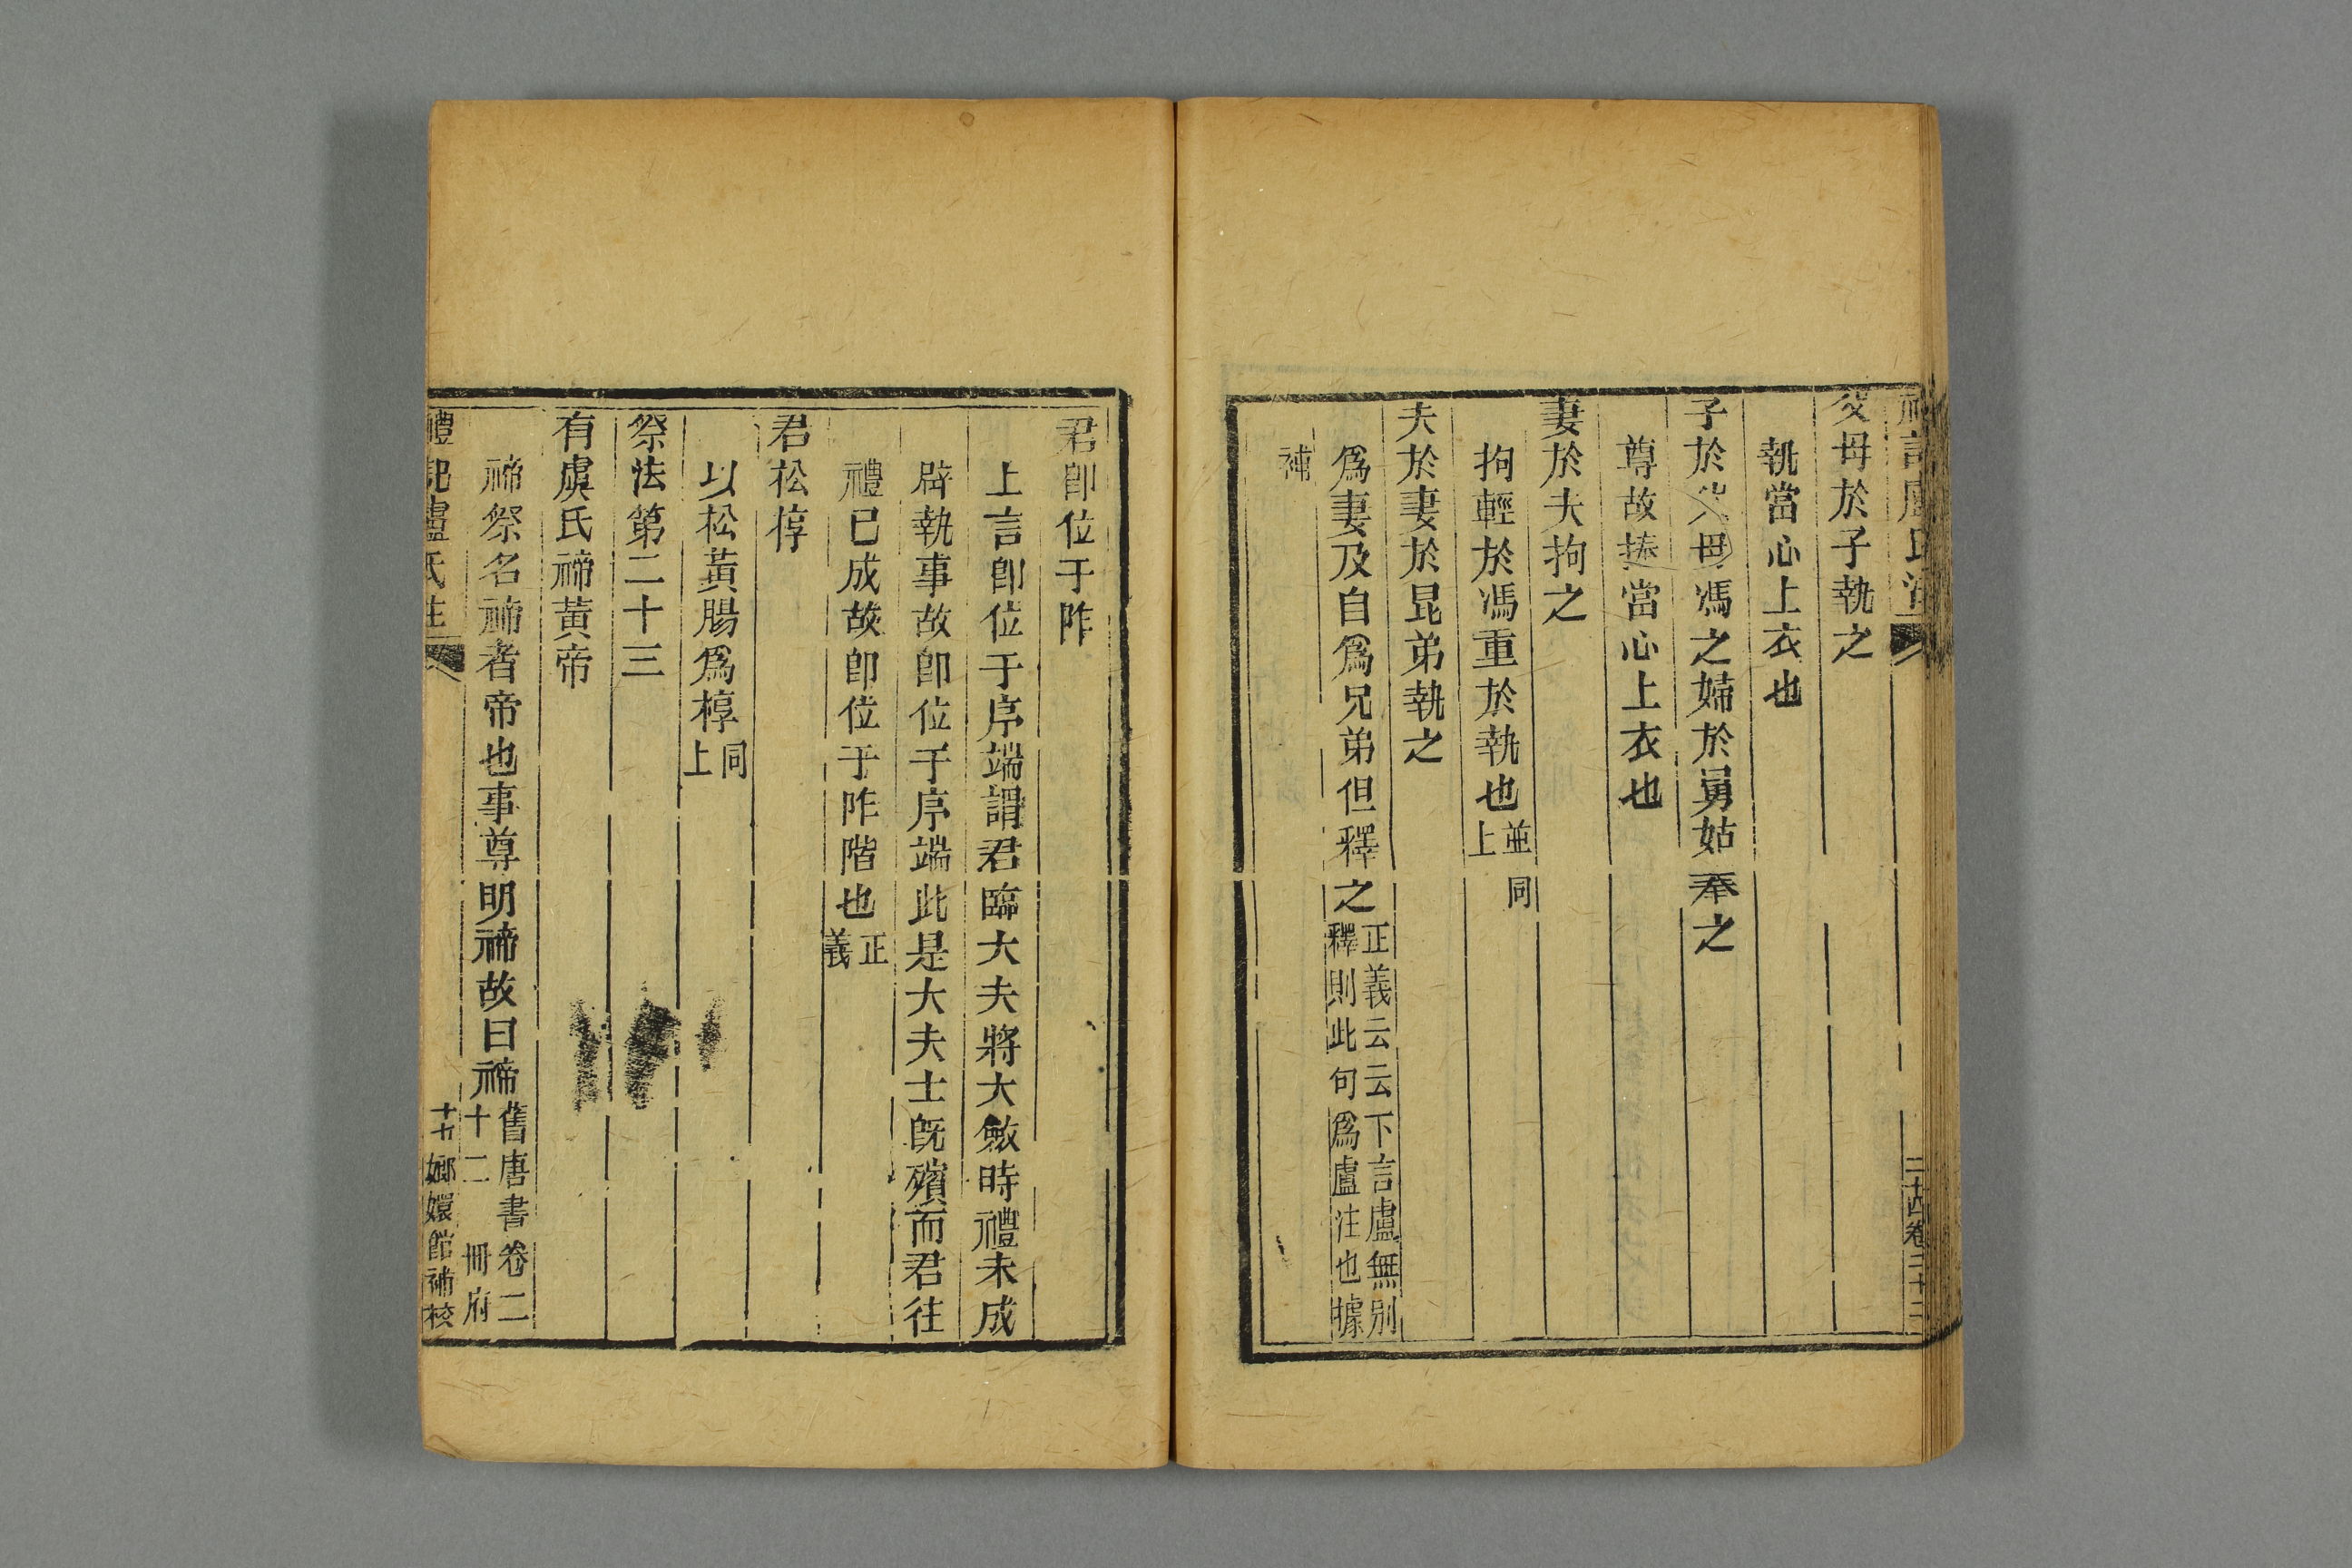 父母於子執之
執當心上衣也
子於父母馮之婦於舅姑奉之
尊故捧當心上衣也
妻於夫拘之
拘輕於馮重於執也並同上
夫於妻於昆弟執之
爲妻及自爲兄弟但釋之正義云云下言盧無別釋則此句爲盧注也據
補
君卽位于阼
上言卽位于序端謂君臨大夫將大斂時禮未成
辟執事故卽位于序端此是大夫士旣殯而君往
禮已成故卽位于阼階也正義
君松椁
以松黃腸爲椁同上
祭法第二十三
有虞氏禘黃帝
禘祭名禘者帝也事尊明禘故曰禘舊唐書卷二十二 冊府
禮記盧氏注
嫏嬛館補校